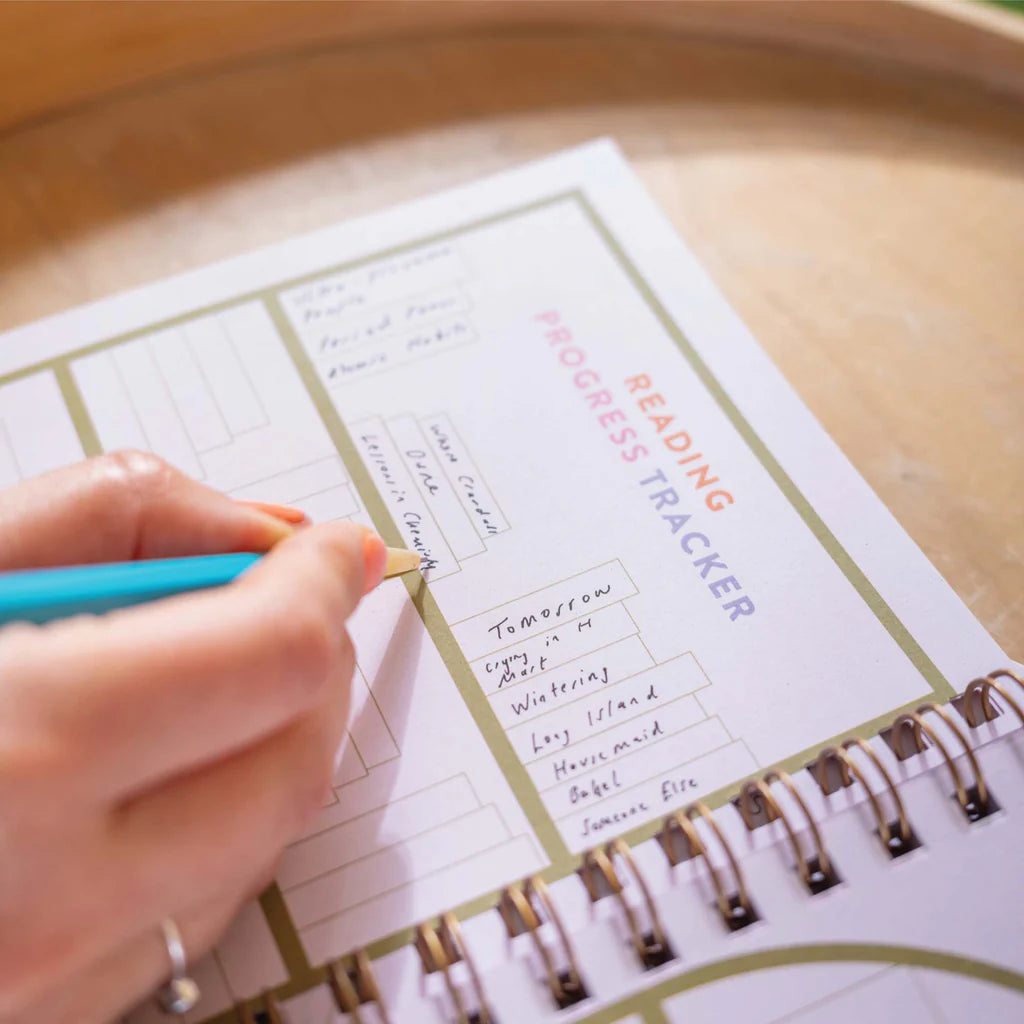 READING
PROGRESS TRACKER
People
Period Power
Atomic Habits
Where Crawdads
Dune
Lessons in Chemistry
Tomorrow
Crying in H
Mart
Wintering
Long Island
Housemaid
Babel
Someone Else